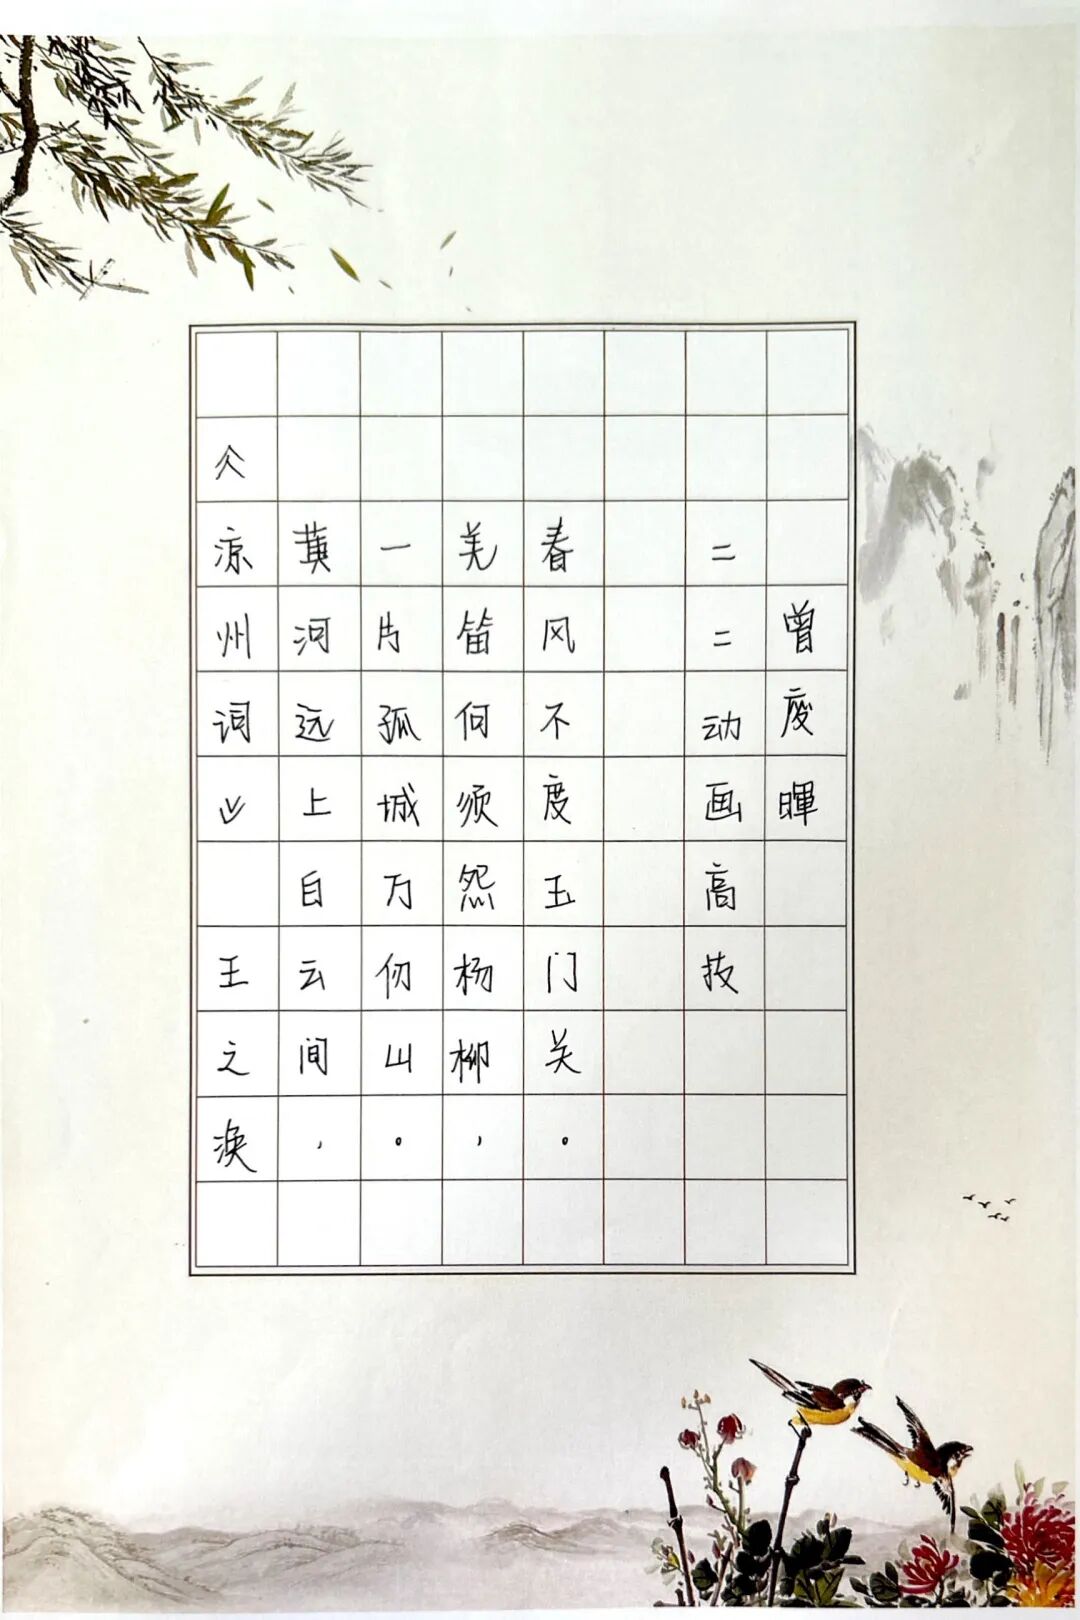 《凉州词》 王之涣
黄河远上白云间，
一片孤城万仞山。
羌笛何须怨杨柳，
春风不度玉门关。
二二动画高技
曾庆暉